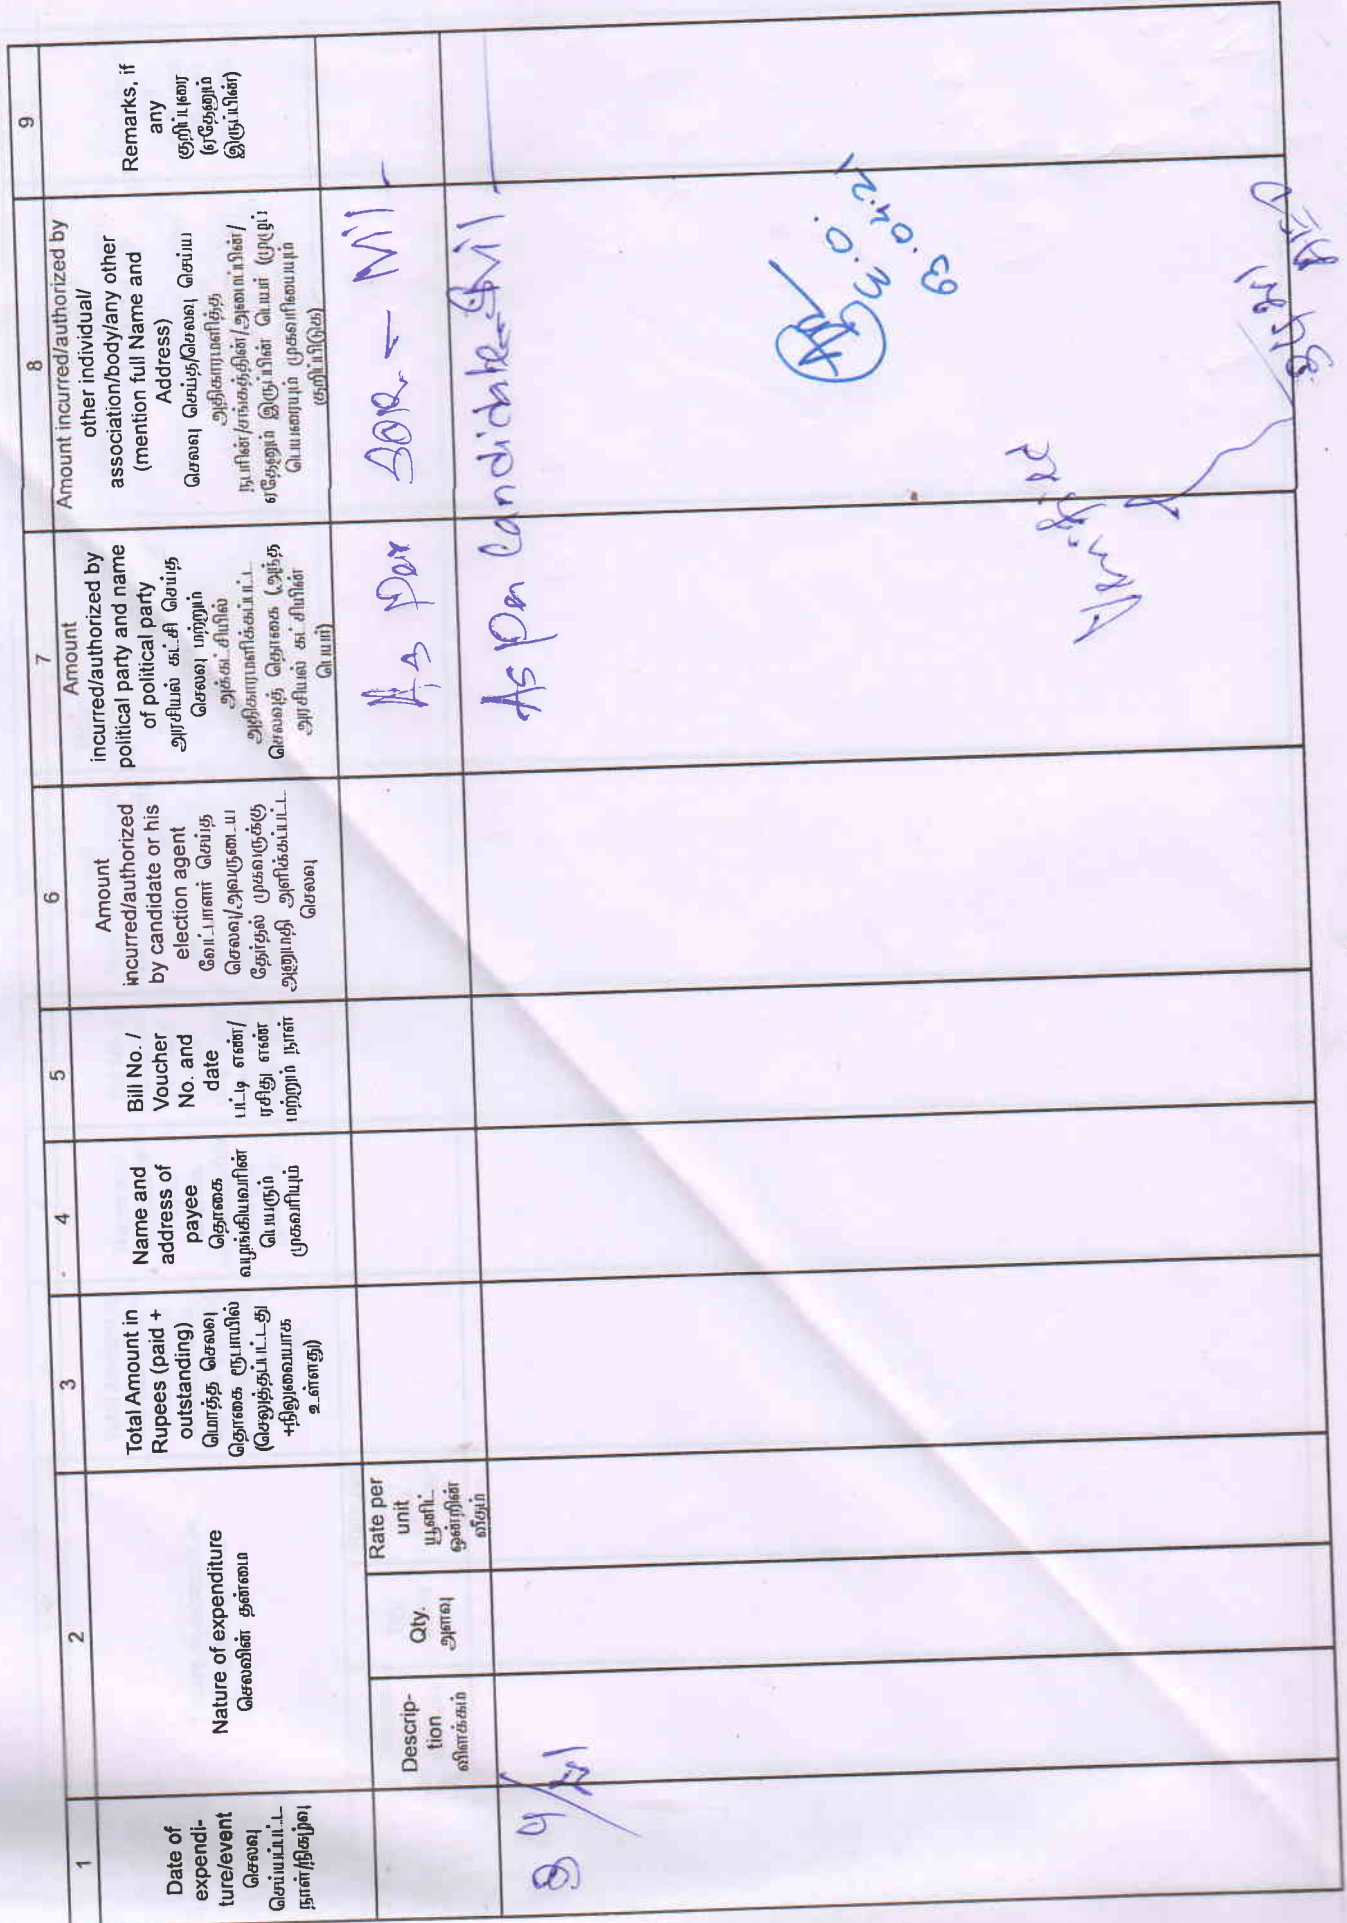 1
Date of
expendi-
ture/event
செலவு
செய்யப்பட்ட
நாள்/நிகழ்வு
2
Nature of expenditure
செலவின் தன்மை
Descrip-
tion
விளக்கம்
Qty.
அளவு
Rate per
unit
யூனிட்
ஒன்றின்
வீதம்
3
Total Amount in
Rupees (paid +
outstanding)
மொத்த செலவு
தொகை ரூபாயில்
(செலுத்தப்பட்டது
+நிலுவையாக
உள்ளது)
4
Name and
address of
payee
தொகை
வழங்கியவரின்
பெயரும்
முகவரியும்
5
Bill No. /
Voucher
No. and
date
பட்டி எண்/
ரசிது எண்
மற்றும் நாள்
6
Amount
incurred/authorized
by candidate or his
election agent
வேட்பாளர் செய்த
செலவு/அவருடைய
தேர்தல் முகவருக்கு
அனுமதி அளிக்கப்பட்ட
செலவு
7
Amount
incurred/authorized by
political party and name
of political party
அரசியல் கட்சி செய்த
செலவு மற்றும்
அக்கட்சியில்
அதிகாரமளிக்கப்பட்ட
செலவுத் தொகை (அந்த
அரசியல் கட்சியின்
பெயர்)
8
Amount incurred/authorized by
other individual/
association/body/any other
(mention full Name and
Address)
செலவு செய்த/செலவு செய்ய
அதிகாரமளித்த
நபரின்/சங்கத்தின்/அமைப்பின்/
ஏதேனும் இருப்பின் பெயர் (முழுப்
பெயரையும் முகவரியையும்
குறிப்பிடுக)
9
Remarks, if
any
குறிப்புரை
(ஏதேனும்
இருப்பின்)
As per SOR - Nil -
As per Candidate - Nil -
03.04.21
Verified
3/4/21 AEO